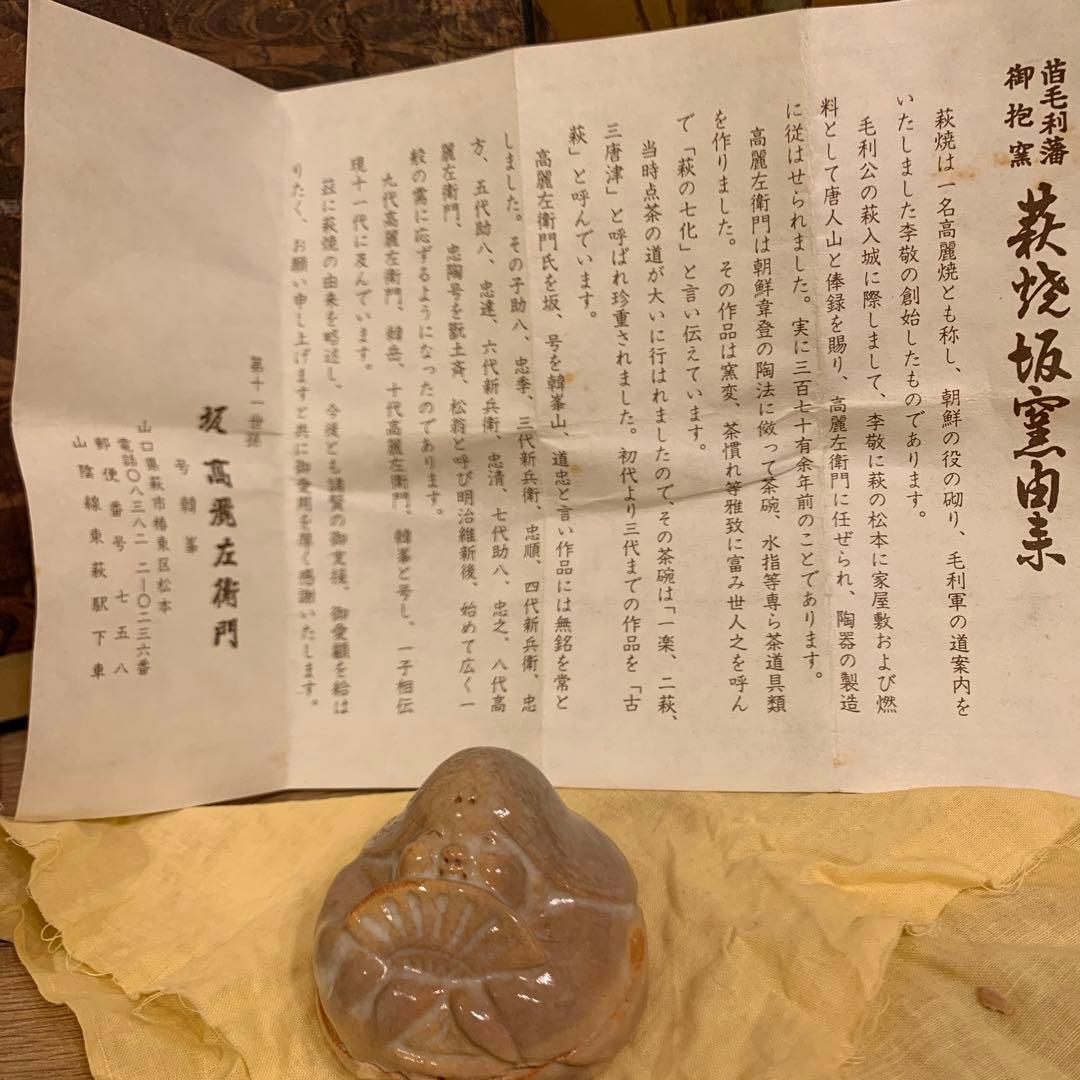 旧毛利藩
御抱窯
萩焼坂窯由来
萩焼は一名高麗焼とも称し、朝鮮の役の砌り、毛利軍の道案内を
いたしました李敬の創始したものであります。
毛利公の萩入城に際しまして、李敬に萩の松本に家屋敷および燃
料として唐人山と俸録を賜り、高麗左衛門に任ぜられ、陶器の製造
に従はせられました。実に三百七十有余年前のことであります。
高麗左衛門は朝鮮韋登の陶法に倣って茶碗、水指等専ら茶道具類
を作りました。その作品は窯変、茶慣れ等雅致に富み世人之を呼ん
で「萩の七化」と言い伝えています。
当時点茶の道が大いに行はれましたので、その茶碗は「一楽、二萩、
三唐津」と呼ばれ珍重されました。初代より三代までの作品を「古
萩」と呼んでいます。
高麗左衛門氏を坂、号を韓峯山、道忠と言い作品には無銘を常と
しました。その子助八、忠季、三代新兵衛、忠順、四代新兵衛、忠
方、五代助八、忠達、六代新兵衛、忠清、七代助八、忠之、八代高
麗左衛門、忠陶号を翫土斉、松翁と呼び明治維新後、始めて広く一
般の需に応ずるようになったのであります。
九代高麗左衛門、韓岳、十代高麗左衛門、韓峯と号し、一子相伝
現十一代に及んでいます。
茲に萩焼の由来を略述し、今後とも諸賢の御支援、御愛顧を給は
りたく、お願い申し上げますと共に御愛用を厚く感謝いたします。
第十一世孫
坂高麗左衛門
号韓峯
山口県萩市椿東区松本
電話〇八三八二 二―〇二三六番
郵便番号 七五八
山陰線東萩駅下車